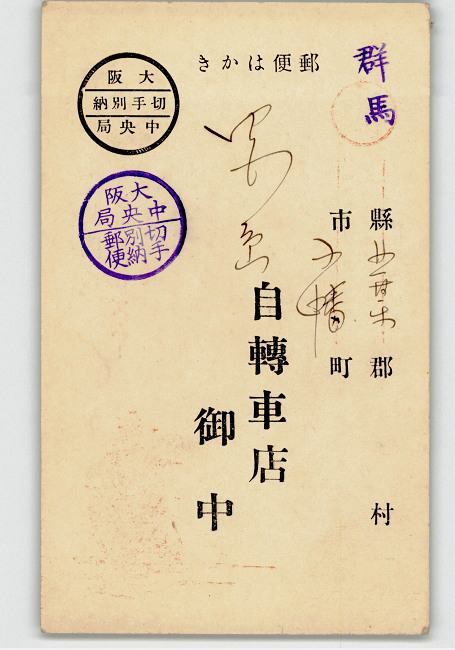 郵便はかき
群馬
縣 郡 村
市 小幡 町
自轉車店
御中
大阪
切手別納
中央局
大阪
中央局
切手
別納
郵便